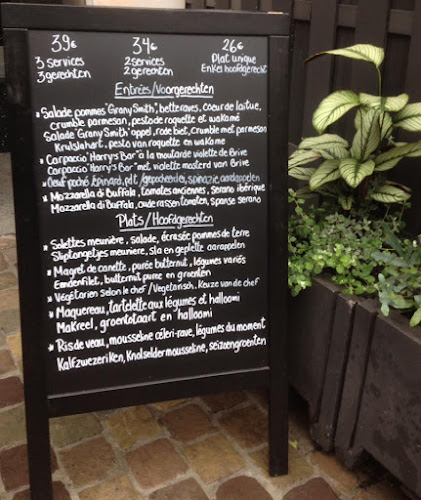 39€ 34€ 26€
3 services 2 services Plat unique
3 gerechten 2 gerechten Enkel hoofdgerecht
Entrées/Voorgerechten
* Salade pommes "Grany Smith", betteraves, coeur de laitue,
crumble parmesan, pesto de roquette et wakamé
Salade "Grany Smith" appel, rode biet, crumble met parmesan
Krulslahart, pesto van roquette en wakame
* Carpaccio "Harry's Bar" à la moutarde violette de Brive
Carpaccio "Harry's Bar" met violette mosterd van Brive
* Oeuf poché, épinard, pdt / gepocheerd ei, spinazie, aardappelen
* Mozzarella di Buffala, tomates anciennes, serano ibérique
Mozzarella di Bufala, oude rassen tomaten, spaanse serano
Plats/Hoofdgerechten
* Solettes meunière, salade, écrasée pommes de terre
Sliptongetjes meuniere, sla en geplette aardappelen
* Magret de canette, purée butternut, légumes variés
Eendenfilet, butternut puree en groenten
* Végétarien selon le chef / Vegetarisch, Keuze van de chef
* Maquereau, tartelette aux légumes et halloomi
Makreel, groentotaart en halloomi
* Ris de veau, mousseline céleri-rave, légumes du moment
Kalfzwezeriken, Knolseldermousseline, seizoengroenten